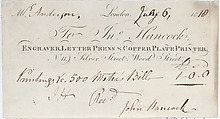 Mr. Anderson, London, July 6, 1810
To Jno. Hancock,
Engraver, Letter Press & Copper Plate Printer,
No. 47 Silver Street, Wood Street
Printing 500 Bill 1-0-0
Recd.
John Hancock